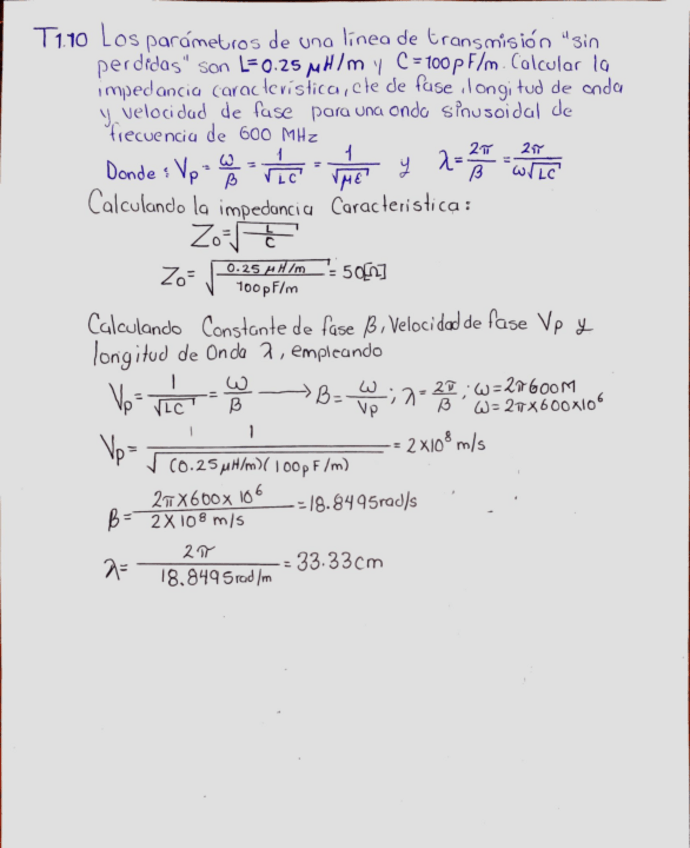 T1.10 Los parámetros de una línea de transmisión "sin
perdidas" son L=0.25 μH/m y C=100pF/m. Calcular la
impedancia característica, cte de fase, longitud de onda
y velocidad de fase para una onda sinusoidal de
frecuencia de 600 MHz
Donde: Vp = ω/β = 1/√LC = 1/√με y λ = 2π/β = 2π/ω√LC
Calculando la impedancia Caracteristica:
Zo=√L/C
Zo= √0.25 μH/m / 100pF/m = 50[Ω]
Calculando Constante de fase β, Velocidad de fase Vp y
longitud de Onda λ, empleando
Vp = 1/√LC = ω/β → β = ω/Vp ; λ = 2π/β ; ω=2π600M
ω=2π×600×10⁶
Vp = 1/√(0.25μH/m)(100pF/m) = 2×10⁸ m/s
β = 2π×600×10⁶ / 2×10⁸ m/s = 18.8495rad/s
λ = 2π / 18.8495rad/m = 33.33cm